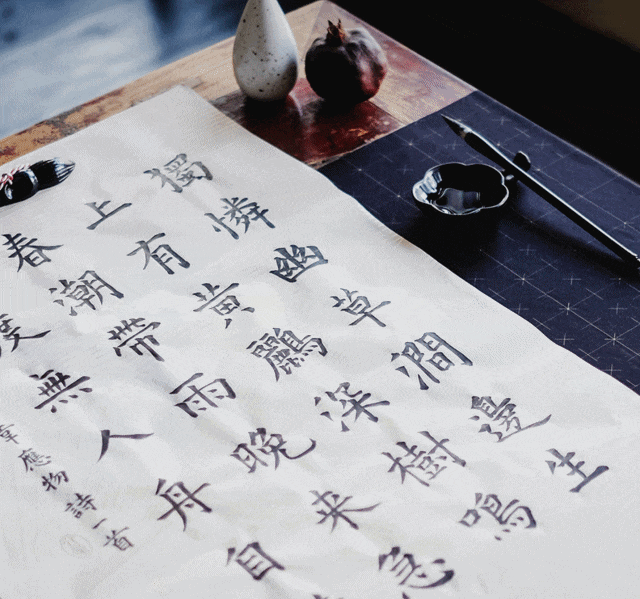 獨憐幽草澗邊生
上有黃鸝深樹鳴
春潮帶雨晚來急
無人舟自
韋應物詩一首